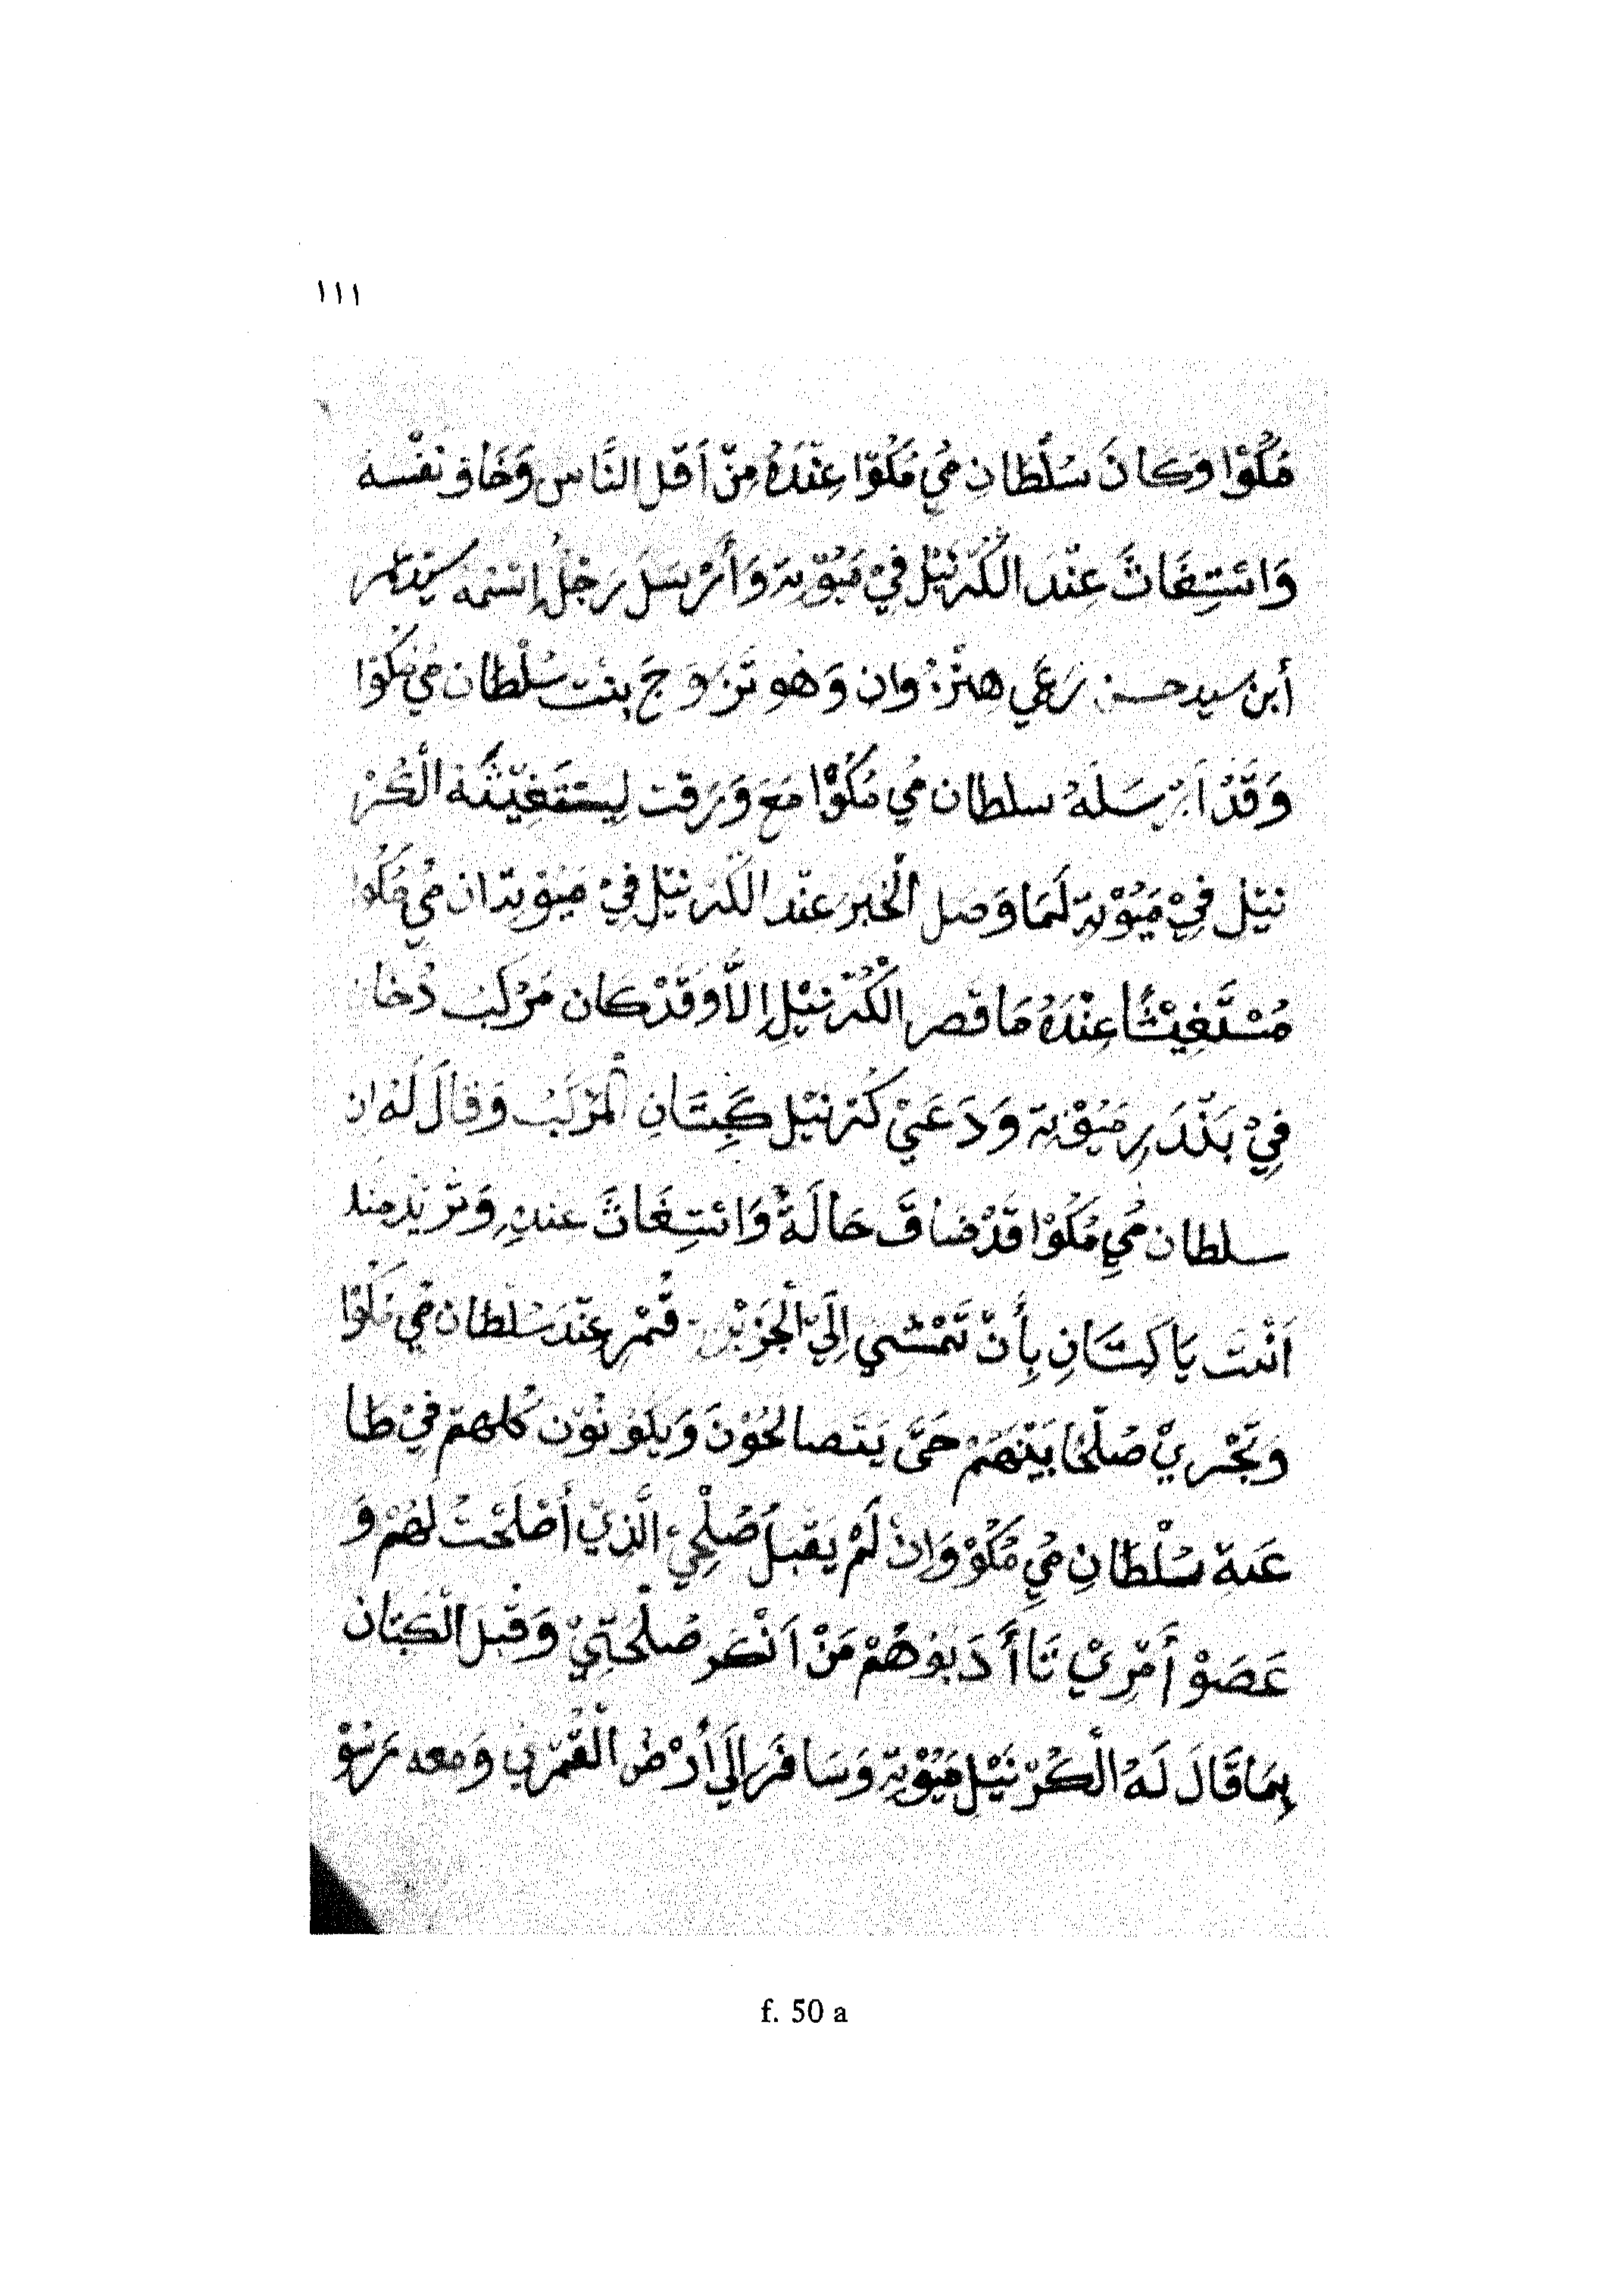 ١١١
مُكُوْا وَكَانَ سُلْطَانِ مُي مُكُوْا عِنْدَهُ مِنْ أَقَلِ النَّاسِ وَخَافَ نَفْسَهُ
وَائْتِغَاثَ عِنْدَ الْكُرْنَيْلِ فِيْ مَيُوْتِهَ وَأَرْسَلَ رَجُلُ إِسْمُهُ سَيِّد
أبن سيد حسن رَعِي هِنْزُوَان وَهُو تَزَوَجَ بِنْت سُلْطَان مُي مُكُوْا
وَقَدْ اَرْسَلَهُ سلطان مُي مُكُوْا مَعَ وَرَقت لِيَسْتَغِيْثَهُ الْكُرْ
نَيْل فِيْ مَيُوْتِهَ لَمَا وَصَل الْخَبَر عِنْد الْكُرْنَيْلِ فِيْ مَيُوْتِهَ ان مُي مُكُوا
مُسْتَغِيْثًا عِنْدَهُ مَا قَصر الْكُرْنَيْلِ إِلَّا وَقَدْ كَان مَرْكَبُ دُخَان
فِيْ بَنْدَرِ مَيُوْتِهَ وَدَعَيْ كُرْنَيْل كَبِتَانِ الْمَرْكَبُ وَقَالَ لَهُ ان
سلطان مُي مُكُوْا قَدْ ضَاقَ حَالَهُ وَائْتِغَاثَ عندهِ وَتُرِيْد منك
اَنْتَ يَا كَبِتَانِ بِأَنْ تَمْشي إِلَيْ الْجَزِيْرَ فُمْر عِنْدَ سُلْطَان مُي مُكُوْا
وَتَجْرِيْ صُلْحًا بَيْنَهُمْ حَتَّى يَتَصالحُوْنَ وَيَكُوْنُوْن كُلهمْ فِيْ طَا
عَة سُلْطَانِ مُي مُكُوْ وَاِنْ لَمْ يَقْبَلُ صُلْحِيْ الَّذِيْ أَصْلَحْتُ لَهُمْ وَ
عَصَوْ أَمْرِيْ تَاأَدَبُوهُمْ مَنْ اَنْكَر صُلْحَتِيْ وَقَبَل الْكَبِتَان
بِمَا قَالَ لَهُ الْكُرْنَيْل مَيُوْتِهَ وَسَافَرَ إِلَى أَرْض الْقُمْرِي وَمعه
f. 50 a